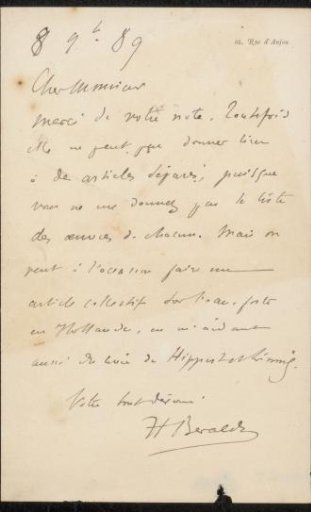 8 9bre 89
10, Rue d'Anjou
Cher Monsieur
Merci de votre note. Toutefois
elle ne peut que donner lieu
à des articles séparés, puisque
vous ne me donnez pas la liste
des œuvres de chacun. Mais on
peut à l'occasion faire un
article collectif sur l'eau-forte
en Hollande, en
aussi du livre de Hippert et Linnig.
Votre tout dévoué
H Beraldi